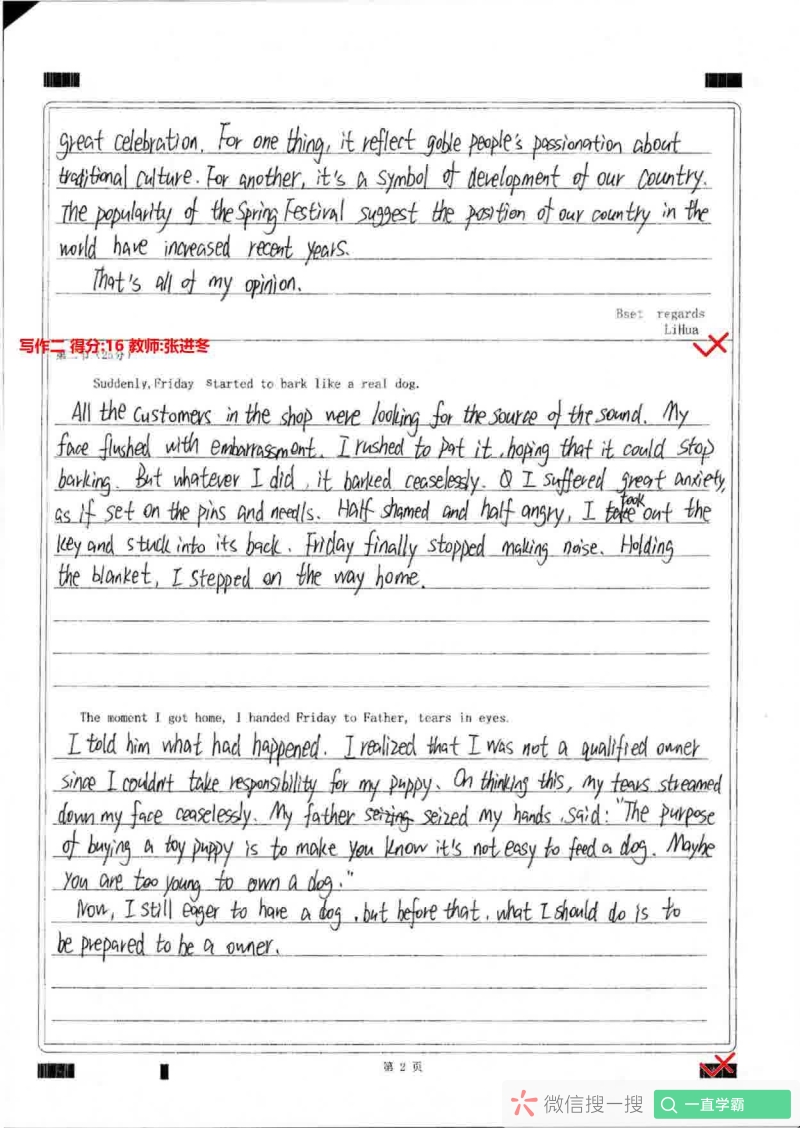 great celebration. For one thing, it reflect goble people's passionation about
traditional culture. For another, it's a symbol of development of our country.
The popularity of the Spring Festival suggest the position of our country in the
world have increased recent years.
That's all of my opinion.
Bse: regards
LiHua
写作二 得分:16 教师:张进冬
第二节(25分)
Suddenly, Friday started to bark like a real dog.
All the customers in the shop were looking for the source of the sound. My
face flushed with embarrassment. I rushed to pat it, hoping that it could stop
barking. But whatever I did, it barked ceaselessly. I suffered great anxiety,
as if set on the pins and needls. Half shamed and half angry, I took out the
key and stuck into its back. Friday finally stopped making noise. Holding
the blanket, I stepped on the way home.
The moment I got home, I handed Friday to Father, tears in eyes.
I told him what had happened. I realized that I was not a qualified owner
since I couldn't take responsibility for my puppy. On thinking this, my tears streamed
down my face ceaselessly. My father seizing seized my hands, said: "The purpose
of buying a toy puppy is to make you know it's not easy to feed a dog. Maybe
you are too young to own a dog."
Now, I still eager to have a dog, but before that, what I should do is to
be prepared to be a owner.
第 2 页
微信搜一搜
一直学霸